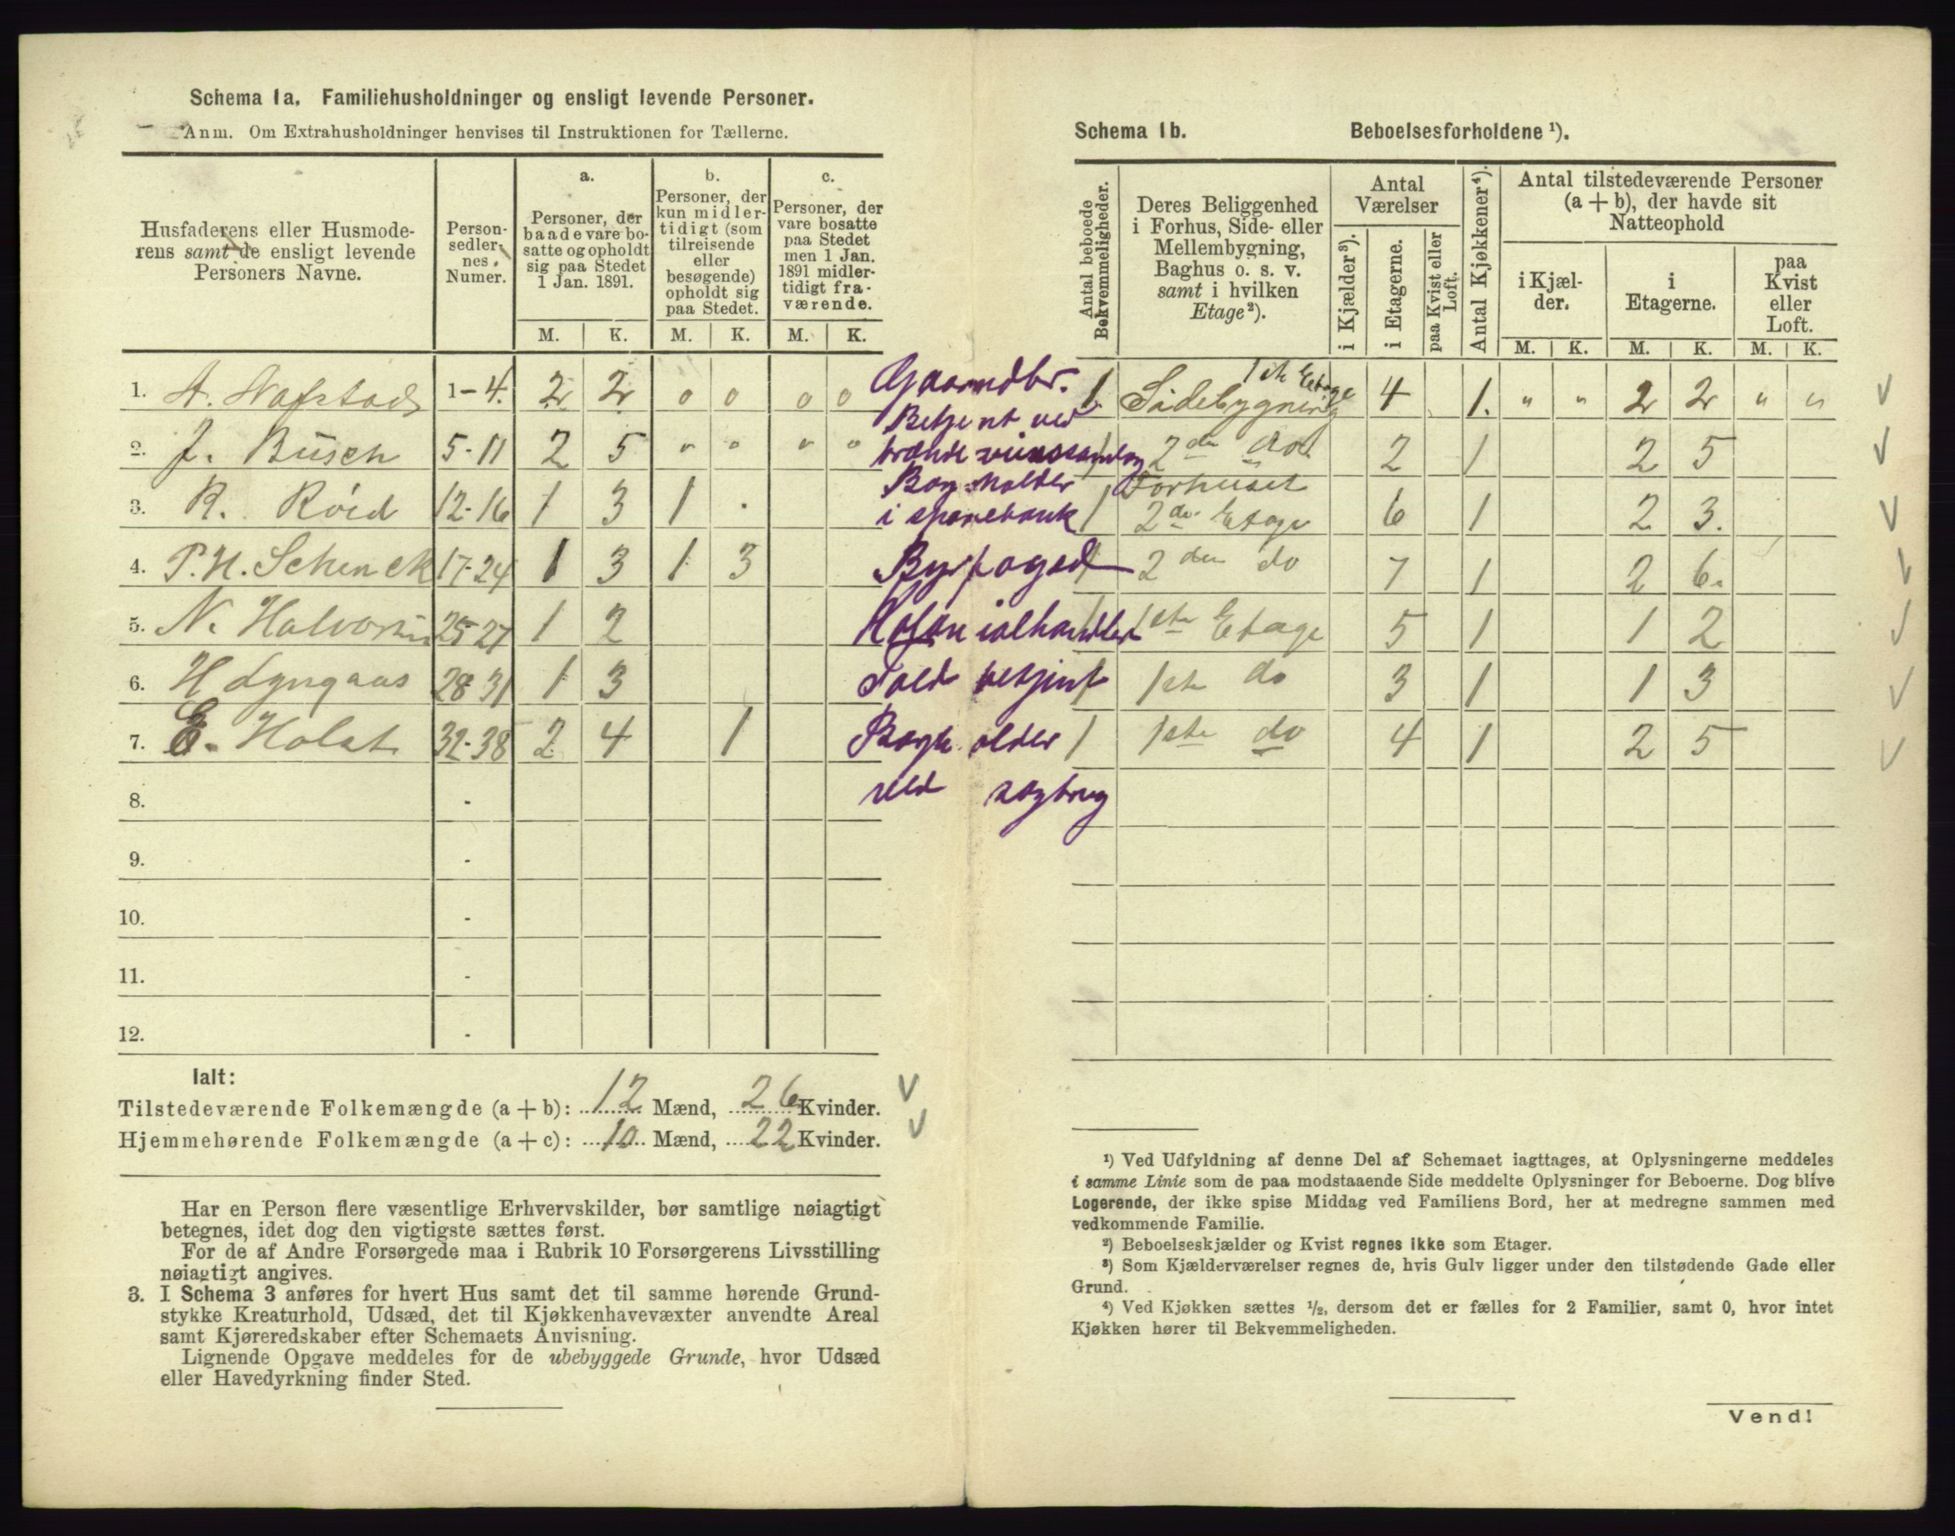 Schema 1a. Familiehusholdninger og ensligt levende Personer.
Anm. Om Extrahusholdninger henvises til Instruktionen for Tællerne.
Husfaderens eller Husmoderens samt de ensligt levende Personers Navne.
Personsedlernes Numer.
a. Personer, der baade vare bosatte og opholdt sig paa Stedet 1 Jan. 1891.
b. Personer, der kun midlertidigt (som tilreisende eller besøgende) opholdt sig paa Stedet.
c. Personer, der vare bosatte paa Stedet men 1 Jan. 1891 midlertidigt fraværende.
M. K. M. K. M. K.
1. A. Nafstad 1-4. 2 2 0 0 0 0 Gaardbr.
2. J. Büsch 5-11 2 5 " " " " Betjent ved brændeviinssamlag
3. R. Röed 12-16 1 3 1 . Bogholder i sparebank
4. P. H. Schenck 17-24 1 3 1 3 Byfoged
5. N. Halvorsen 25-27 1 2 Kolonialhandler
6. H Lyngaas 28-31 1 3 Toldbetjent
7. E. Holst 32-38 2 4 1 Bogholder ved sagbrug
8. -
9. -
10. -
11. -
12. -
Ialt:
Tilstedeværende Folkemængde (a + b): 12 Mænd, 26 Kvinder.
Hjemmehørende Folkemængde (a + c): 10 Mænd, 22 Kvinder.
Har en Person flere væsentlige Erhvervskilder, bør samtlige nøiagtigt
betegnes, idet dog den vigtigste sættes først.
For de af Andre Forsørgede maa i Rubrik 10 Forsørgerens Livsstilling
nøiagtigt angives.
3. I Schema 3 anføres for hvert Hus samt det til samme hørende Grund-
stykke Kreaturhold, Udsæd, det til Kjøkkenhavevæxter anvendte Areal
samt Kjøreredskaber efter Schemaets Anvisning.
Lignende Opgave meddeles for de ubebyggede Grunde, hvor Udsæd
eller Havedyrkning finder Sted.
Schema 1b. Beboelsesforholdene ¹).
Antal beboede Bekvemmeligheder.
Deres Beliggenhed i Forhus, Side- eller Mellembygning, Baghus o. s. v. samt i hvilken Etage²).
Antal Værelser
i Kjælder³).
i Etagerne.
paa Kvist eller Loft.
Antal Kjøkkener⁴).
Antal tilstedeværende Personer (a + b), der havde sit Natteophold
i Kjælder.
i Etagerne.
paa Kvist eller Loft.
M. K. M. K. M. K.
1. Sidebygning 1ste Etage 4 1. " " 2 2 " "
1 2den do 2 1 2 5
1 Forhuset 2de Etage 6 1 2 3.
1 2den do 7 1 2 6.
1 1ste Etage 5 1 1 2
1 1ste do 3 1 1 3
1 1ste do 4 1 2 5
¹) Ved Udfyldning af denne Del af Schemaet iagttages, at Oplysningerne meddeles
i samme Linie som de paa modstaaende Side meddelte Oplysninger for Beboerne. Dog blive
Logerende, der ikke spise Middag ved Familiens Bord, her at medregne sammen med
vedkommende Familie.
²) Beboelseskjælder og Kvist regnes ikke som Etager.
³) Som Kjælderværelser regnes de, hvis Gulv ligger under den tilstødende Gade eller
Grund.
⁴) Ved Kjøkken sættes ½, dersom det er fælles for 2 Familier, samt 0, hvor intet
Kjøkken hører til Bekvemmeligheden.
Vend!